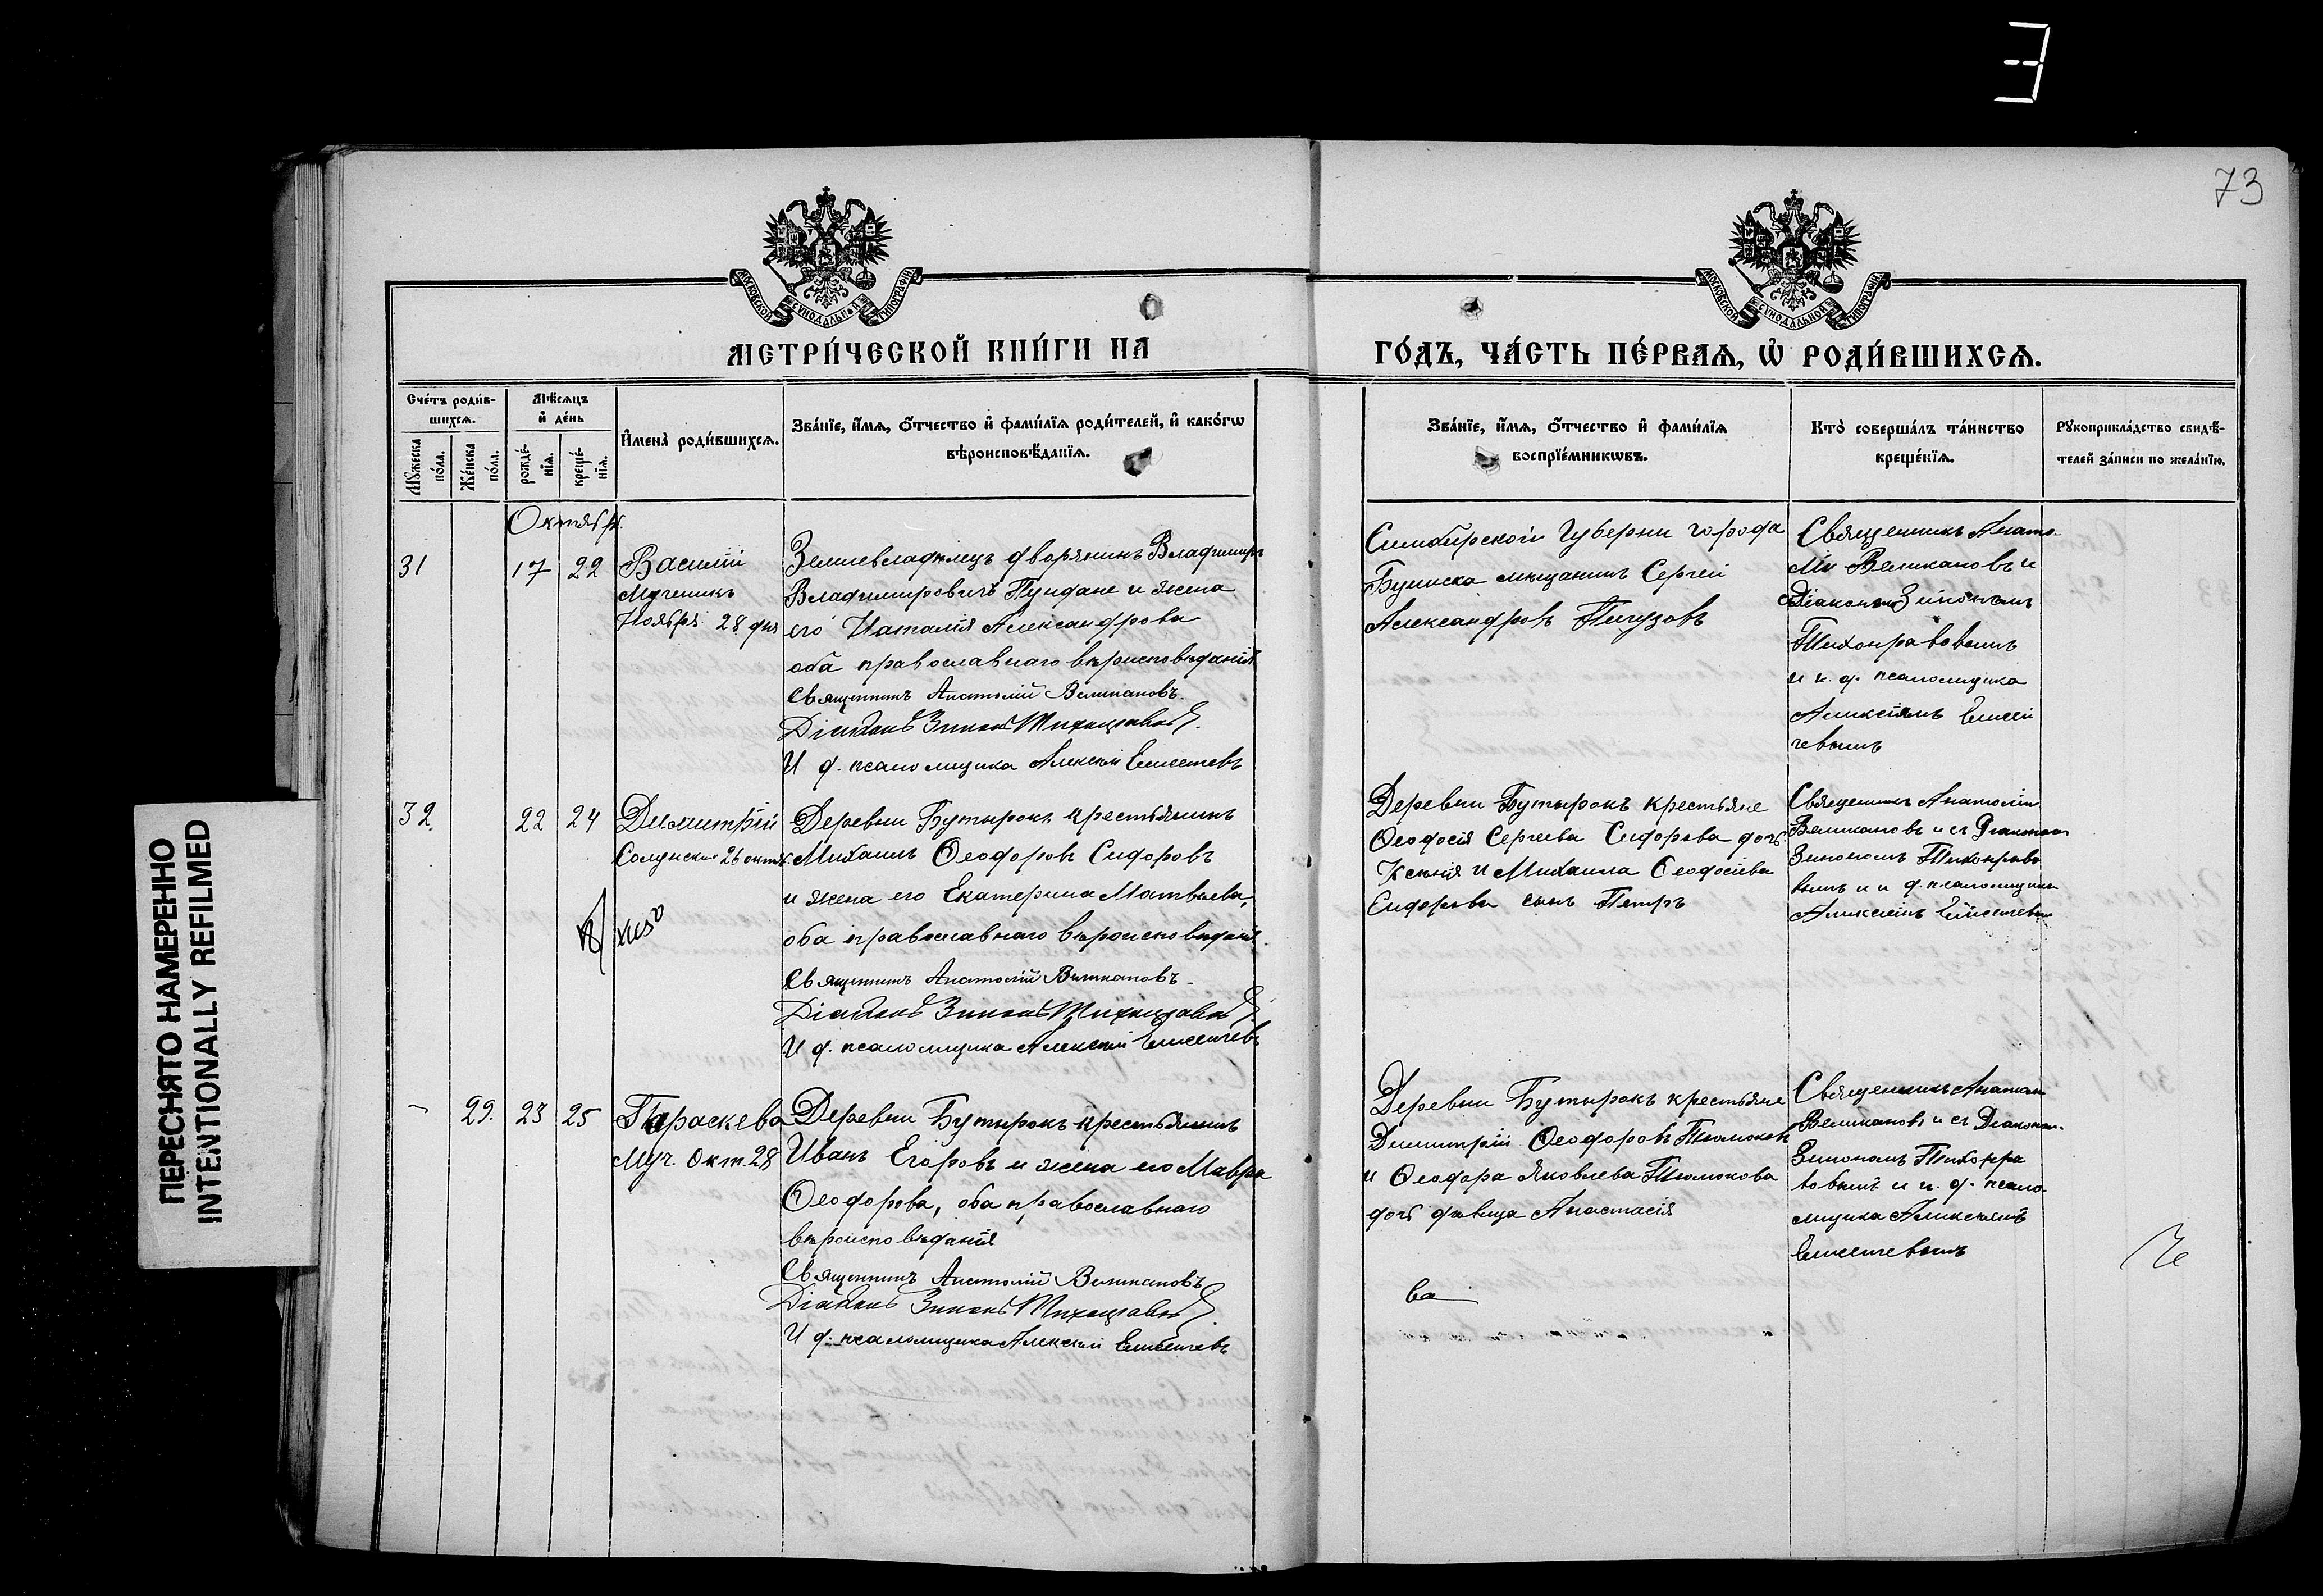 73
МОСКОВСКОЙ СѴНОДАЛЬНОЙ ТИПОГРАФІИ
МОСКОВСКОЙ СѴНОДАЛЬНОЙ ТИПОГРАФІИ
МЕТРИ́ЧЕСКОЙ КНИ́ГИ НА
ГО́ДЪ, ЧА́СТЬ ПЕ́РВАѦ, Ѡ҆ РОДИ́ВШИХСѦ.
Сче́тъ роди́в-
шихсѧ.
Мѹ́жеска по́ла.
Же́нска по́ла.
Мѣ́сѧцъ
и҆ де́нь
рожде́-
нїѧ.
креще́-
нїѧ.
И҆мена̀ роди́вшихсѧ.
Зва́нїе, и҆́мѧ, ѻ҆́тчество и҆ фами́лїѧ роди́телей, и҆ како́гѡ
вѣроисповѣ́данїѧ.
Зва́нїе, и҆́мѧ, ѻ҆́тчество и҆ фами́лїѧ
воспрїе́мникѡвъ.
Кто̀ соверша́лъ та́инство
креще́нїѧ.
Рѹкоприкла́дство свидѣ́-
телей за́писи по жела́нїю.
Октябрь.
31
17 22
Василій
Мученикъ
Ноября 28 дня
Землевладѣлецъ дворянинъ Владимиръ
Владимировичъ и жена
его Наталія Александрова
оба православнаго вѣроисповѣданія
Священникъ Анатолій Великановъ.
Діаконъ Зинонъ Тихонравовъ.
И д. псаломщика Алексѣй Елисеичевъ
Симбирской Губерни города
Буинска мѣщанинъ Сергей
Александровъ Пигузовъ
Священникъ Анато-
лій Великановъ и
съ Діакономъ Зинономъ
Тихонравовымъ
и и. д. псаломщика
Алексѣемъ Елисеи
чевымъ
32.
22 24
Димитрій
Солунскій 26 октяб.
Деревни Бутырокъ крестьянинъ
Михаилъ Ѳеодоровъ Сидоровъ
и жена его Екатерина Матвѣева,
оба православнаго вѣроисповѣданія.
Священникъ Анатолій Великановъ.
Діаконъ Зинонъ Тихонравовъ.
И д. псаломщика Алексѣй Елисеичевъ
Деревни Бутырокъ крестьяне
Ѳеодосія Сергѣева Сидорова дочь
Ксенія и Михаила Ѳеодосіева
Сидорова сынъ Петръ
Священникъ Анатолій
Великановъ и съ Діакономъ
Зинономъ Тихонраво
вымъ и и д. псаломщика
Алексѣемъ Елисеичевымъ
29. 23 25
Параскева
Муч. Окт. 28
Деревни Бутырокъ крестьянинъ
Иванъ Егоровъ и жена его Мавра
Ѳеодорова, оба православнаго
вѣроисповѣданія
Священникъ Анатолій Великановъ
Діаконъ Зинонъ Тихонравовъ.
И д. псаломщика Алексѣй Елисеичевъ
Деревни Бутырокъ крестьяне
Димитрій Ѳеодоровъ Тюмоковъ
и Ѳеодора Яковлева Тюмокова
дочь дѣвица Анастасія
ва
Священникъ Анатолій
Великановъ и съ Діакономъ
Зинономъ Тихонра
вовымъ и и. д. псало
мщика Алексѣемъ
Елисеичевымъ
ПЕРЕСНЯТО НАМЕРЕННО
INTENTIONALLY REFILMED